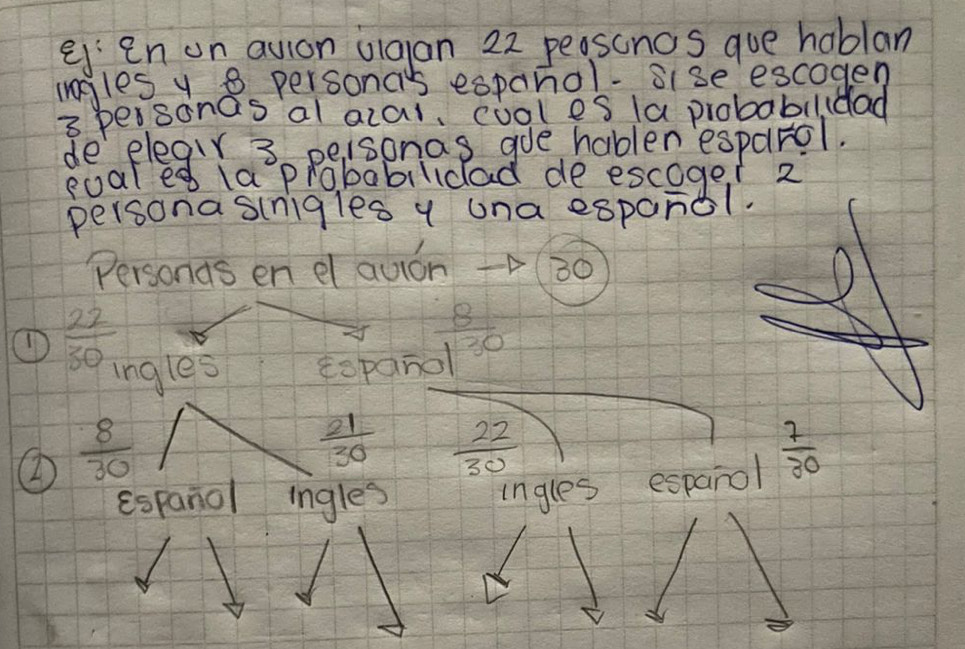 Ej: En un avion viajan 22 personas que hablan
ingles y 8 personas español. Si se escogen
3 personas al azar, cual es la probabilidad
de elegir 3 personas que hablen español.
cual es la probabilidad de escoger 2
personas inigles y una español.
Personas en el avión → 30
① 22/30 8/30
ingles Español
② 8/30 21/30 22/30 7/30
Español ingles ingles español